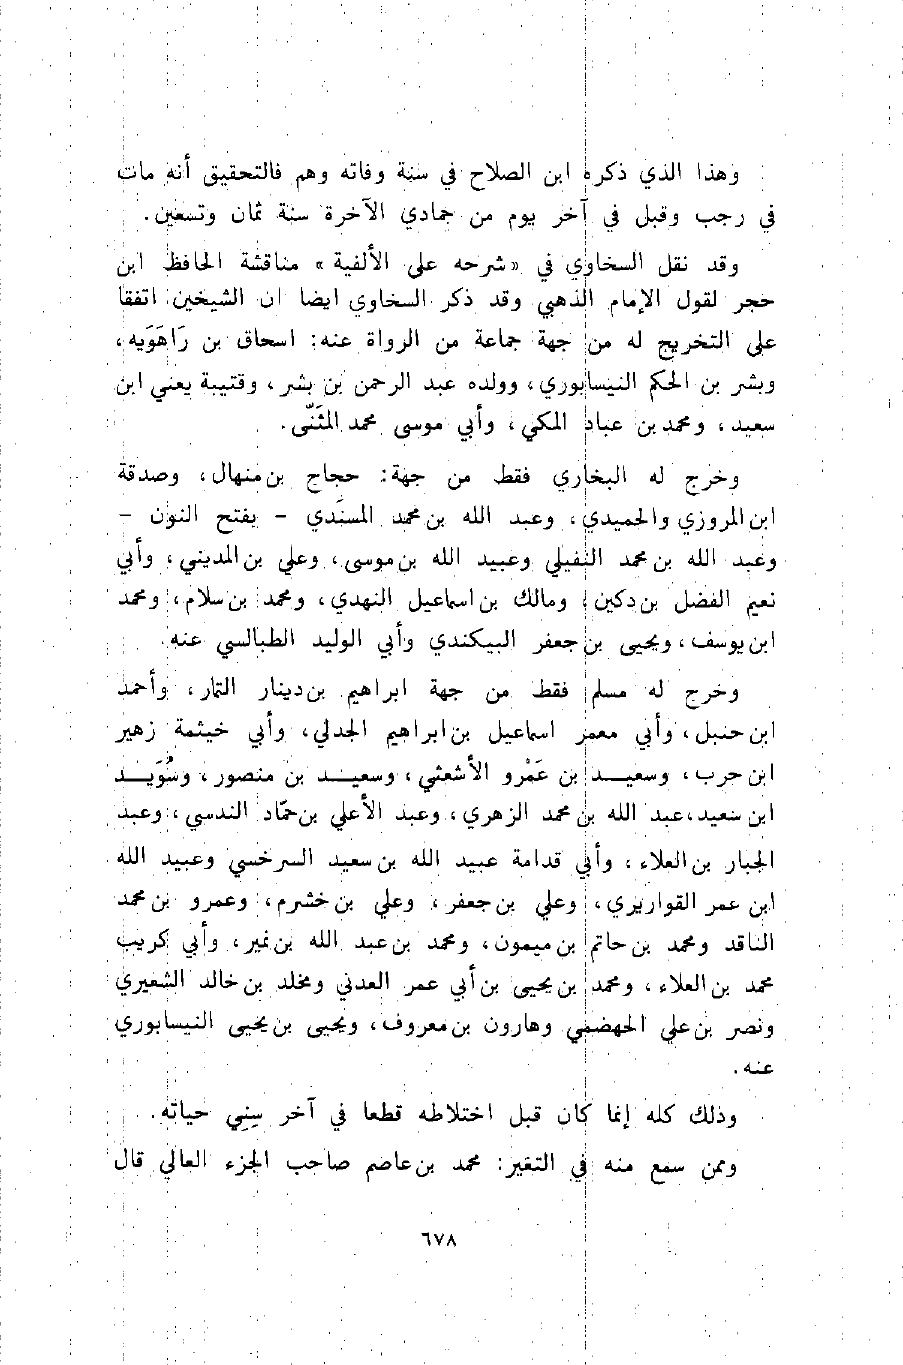 وهذا الذي ذكره ابن الصلاح في سنة وفاته وهم فالتحقيق أنه مات
في رجب وقبل في آخر يوم من جمادي الآخرة سنة ثمان وتسعين.
وقد نقل السخاوي في «شرحه على الألفية» مناقشة الحافظ ابن
حجر لقول الإمام الذهبي وقد ذكر السخاوي ايضا ان الشيخين اتفقا
على التخريج له من جهة جماعة من الرواة عنه: اسحاق بن رَاهَوَيه،
وبشر بن الحكم النيسابوري، وولده عبد الرحمن بن بشر، وقتيبة يعني ابن
سعيد، ومحمد بن عباد المكي، وأبي موسى محمد المثَنَّى.
وخرج له البخاري فقط من جهة: حجاج بن منهال، وصدقة
ابن المروزي والحميدي، وعبد الله بن محمد المسنَدي - بفتح النون -
وعبد الله بن محمد النفيلي وعبيد الله بن موسى، وعلي بن المديني، وأبي
نعيم الفضل بن دكين، ومالك بن اسماعيل النهدي، ومحمد بن سلام، ومحمد
ابن يوسف، ويحيى بن جعفر البيكندي وأبي الوليد الطبالسي عنه.
وخرج له مسلم فقط من جهة ابراهيم بن دينار التمار، وأحمد
ابن حنبل، وأبي معمر اسماعيل بن ابراهيم الجدلي، وأبي خيثمة زهير
ابن حرب، وسعيد بن عَمْرو الأشعثي، وسعيد بن منصور، وسُوَيد
ابن سعيد، عبد الله بن محمد الزهري، وعبد الأعلي بن حمّاد الندسي، وعبد
الجبار بن العلاء، وأبي قدامة عبيد الله بن سعيد السرخسي وعبيد الله
ابن عمر القواريري، وعلي بن جعفر، وعلي بن خشرم، وعمرو بن محمد
الناقد ومحمد بن حاتم بن ميمون، ومحمد بن عبد الله بن نمير، وأبي كريب
محمد بن العلاء، ومحمد بن يحيى بن أبي عمر العدني ومخلد بن خالد الشعيري
ونصر بن علي الجهضمي وهارون بن معروف، ويحيى بن يحيى النيسابوري
عنه.
وذلك كله إنما كان قبل اختلاطه قطعا في آخر سِنِي حياته.
وممن سمع منه في التغير: محمد بن عاصم صاحب الجزء العالي قال
٦٧٨